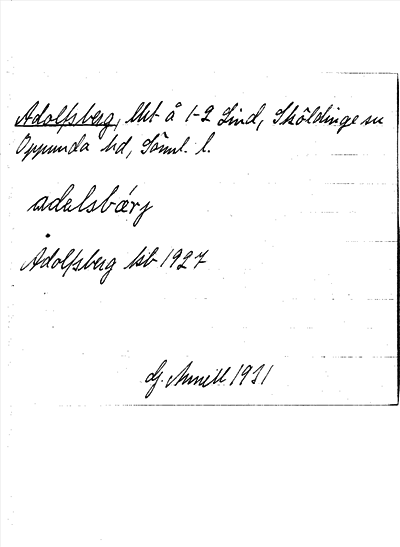 Adolfsberg, lht å 1-2 Lind, Sköldinge sn
Oppunda hd, Söml. l.
adalsbärj
Adolfsberg kb 1927
G. Annell 1931